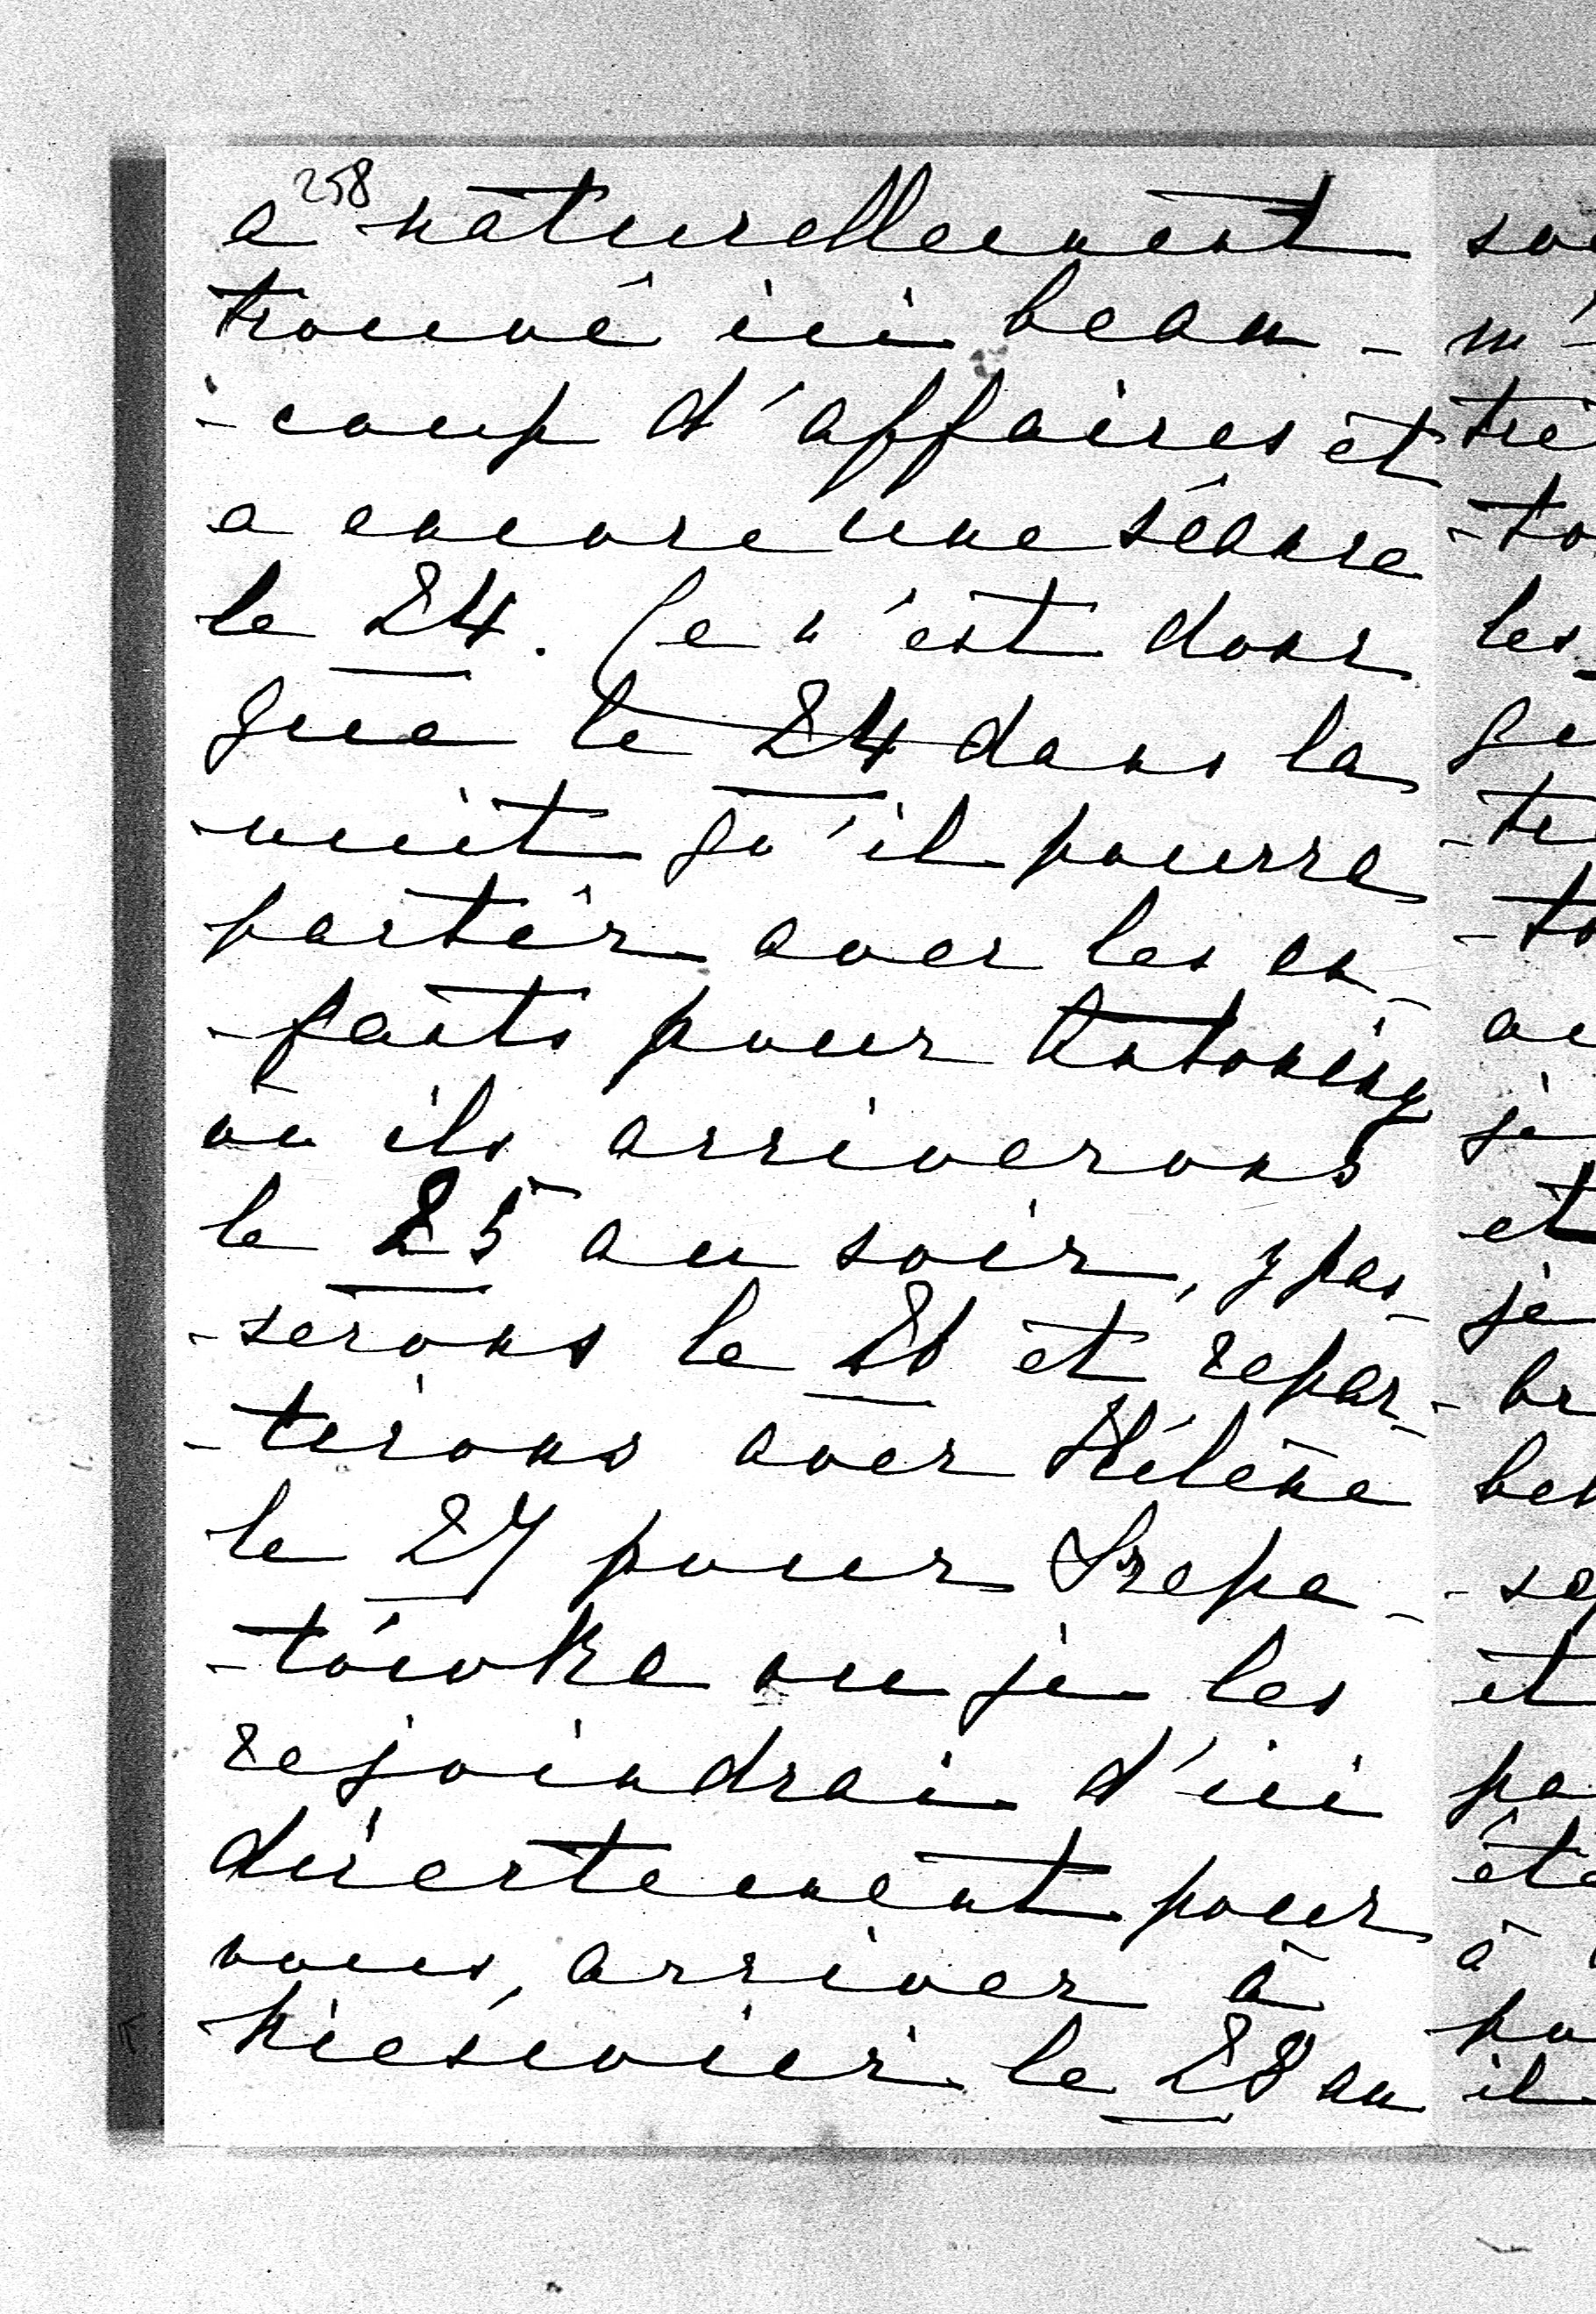 258
a naturellement
trouvé ici beau-
-coup d'affaires et
a encore une séance
le 24. Ce n'est donc
que le 24 dans la
nuit qu'il pourra
partir avec les en-
-fants pour Antoniny
où ils arriverons
le 25 au soir, y pas-
-serons le 26 et repar-
-tirons avec Hélène
le 27 pour Szepe-
-tówka où je les
rejoindrai d'ici
directement pour
nous, arriver à
Nieśwież le 28 au